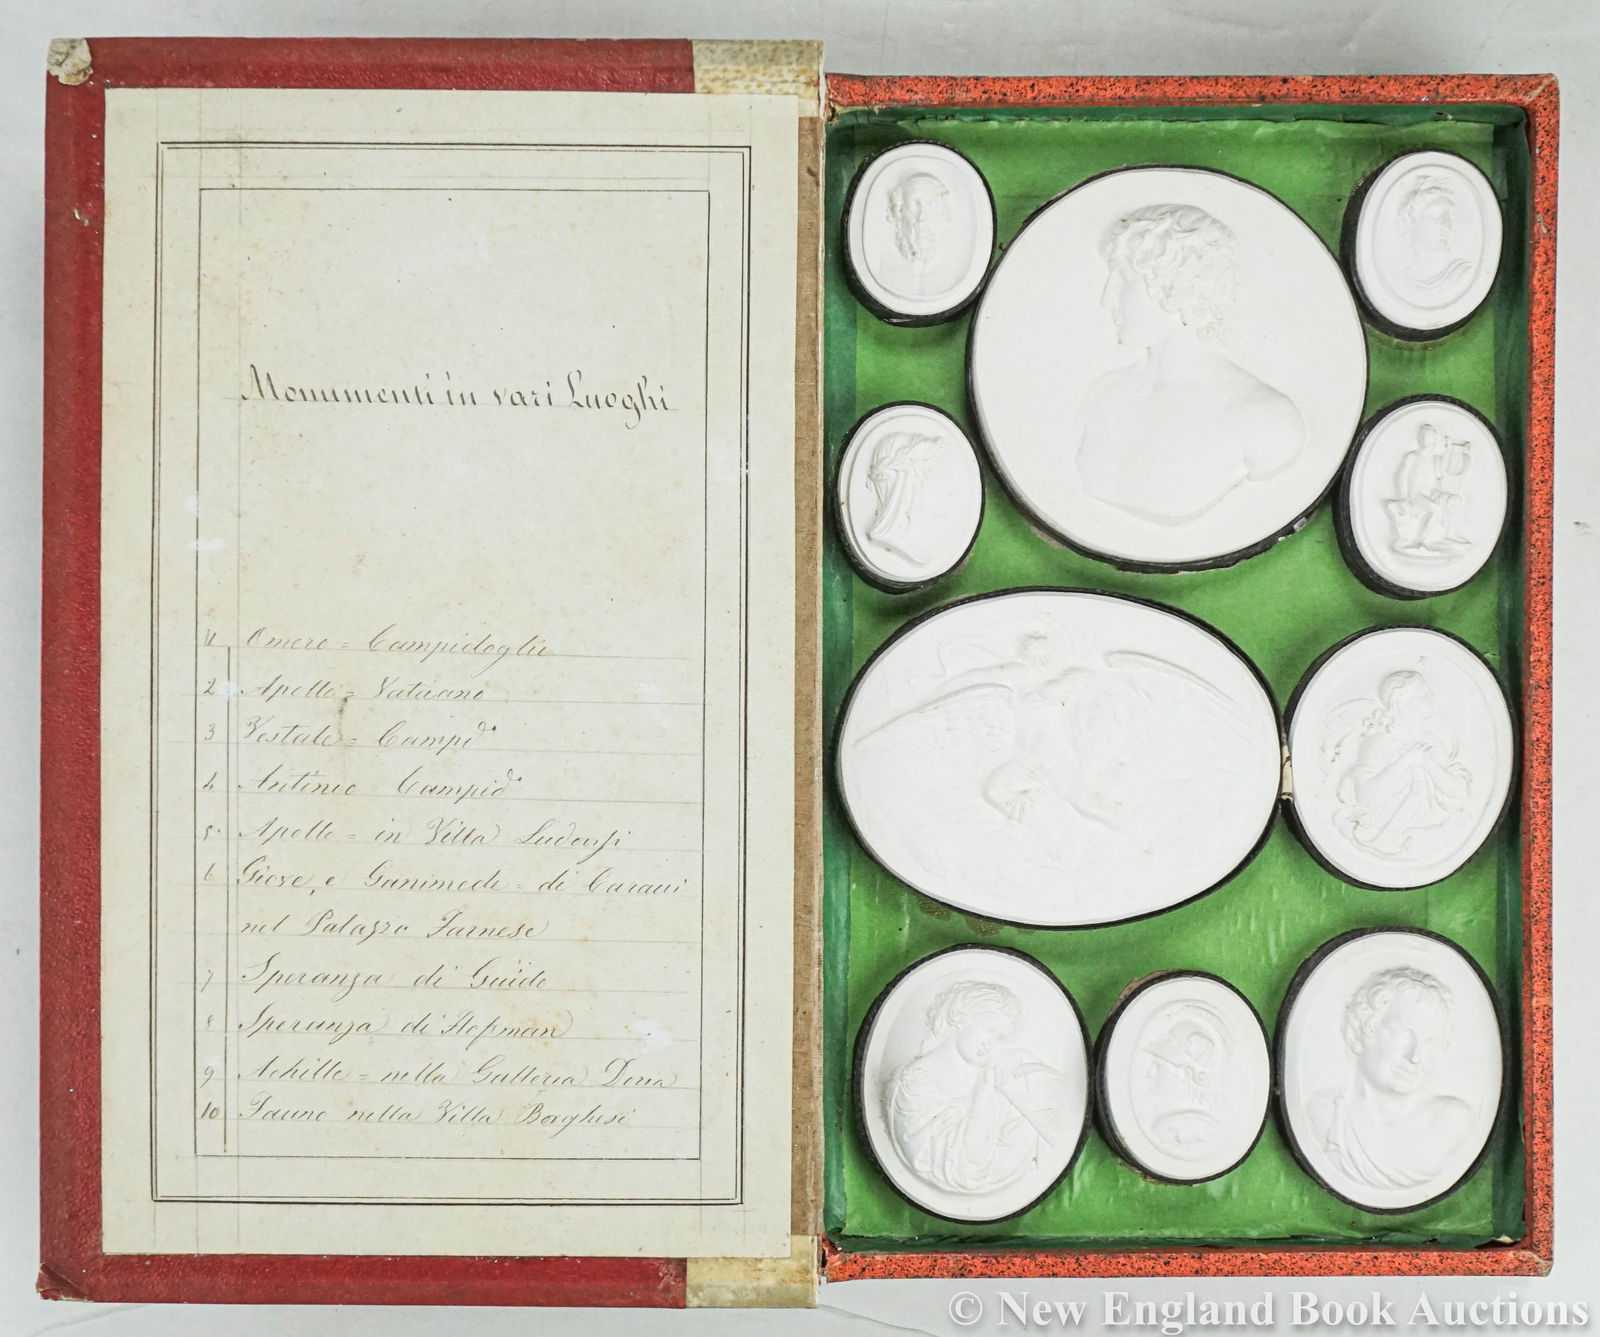 Monumenti in vari Luoghi
1 Omero = Campidoglio
2 Apollo = Vaticano
3 Vestale = Campid.o
4 Antinoo = Campid.o
5 Apollo = in Villa Ludovisi
6 Giove, e Ganimede = di Caracci
nel Palazzo Farnese
7 Speranza di Guido
8 Speranza di Hofman
9 Achille = nella Galleria Doria
10 Fauno nella Villa Borghesi
© New England Book Auctions